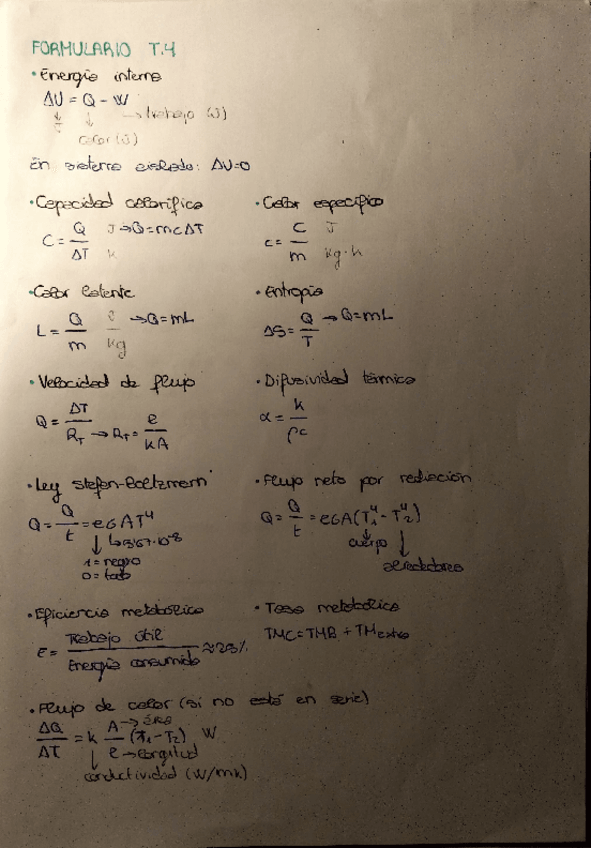 FORMULARIO T.4
• Energía interna
ΔU = Q - W
→ trabajo (J)
calor (J)
En sistema aislado: ΔU=0
• Capacidad calorífica
C = Q/ΔT J/K → Q=mcΔT
• Calor específico
c = C/m J/kg·K
• Calor latente
L = Q/m J/kg → Q=mL
• Entropía
ΔS = Q/T → Q=mL
• Velocidad de flujo
Q = ΔT/R_T → R_T = e/kA
• Difusividad térmica
α = k/ρc
• Ley Stefan-Boltzmann
Q = Q/t = eσAT⁴
↳ 5'67·10⁻⁸
1 = negro
0 = todo
• Flujo neto por radiación
Q = Q/t = eσA(T₁⁴ - T₂⁴)
cuerpo
alrededores
• Eficiencia metabólica
E = Trabajo útil/Energía consumida ≈ 25%
• Tasa metabólica
TMC = TMB + TM extra
• Flujo de calor (si no está en serie)
ΔQ/ΔT = k A/e (T₁-T₂) W
→ área
→ longitud
conductividad (W/mK)